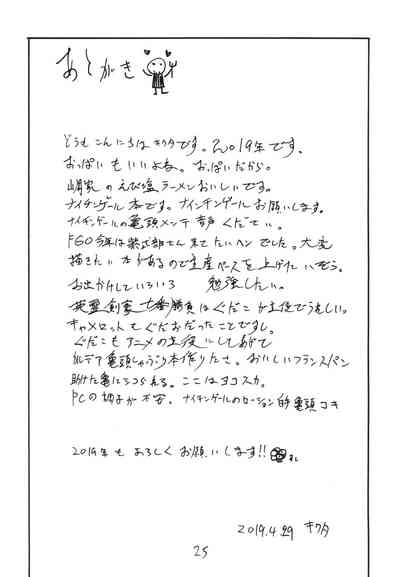 あとがき
どうもこんにちはキクタです。2019年です。
おっぱいもいいよね。おっぱいだから。
のえび塩ラーメンおいしいです。
ナイチンゲール本です。ナイチンゲールお願いします。
ナイチンゲールの亀頭メンテ音声ください。
FGO今年は紫式部さん来てたいヘンでした。大変
描きたい本があるので生産ペースを上げたいぞう。
お出かけしていろいろ 勉強したい。
英霊剣豪七番勝負はぐだこが主役でうれしい。
キャメロットもぐだおだったことですし。
ぐだこもアニメの主役にしてあげて
カルデア亀頭しゃぶり本作りたさ。おいしいフランスパン
助けた亀にシコられる。ここはヨコスカ。
PCの調子が不安。ナイチンゲールのローション的亀頭コキ
2019年もよろしくお願いします!!
2019.4.29 キクタ
25